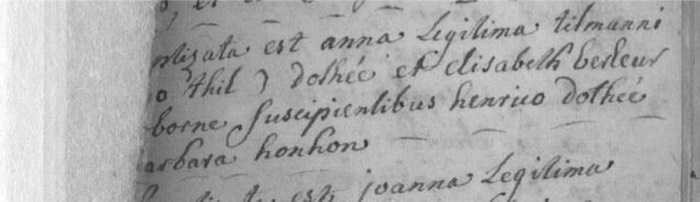 et
ptisata est anna Legitima tilmanni
o thil ) dothée et elisabeth berleur
borne suscipientibus henrico dothée
arbara honhon
est joanna Legitima